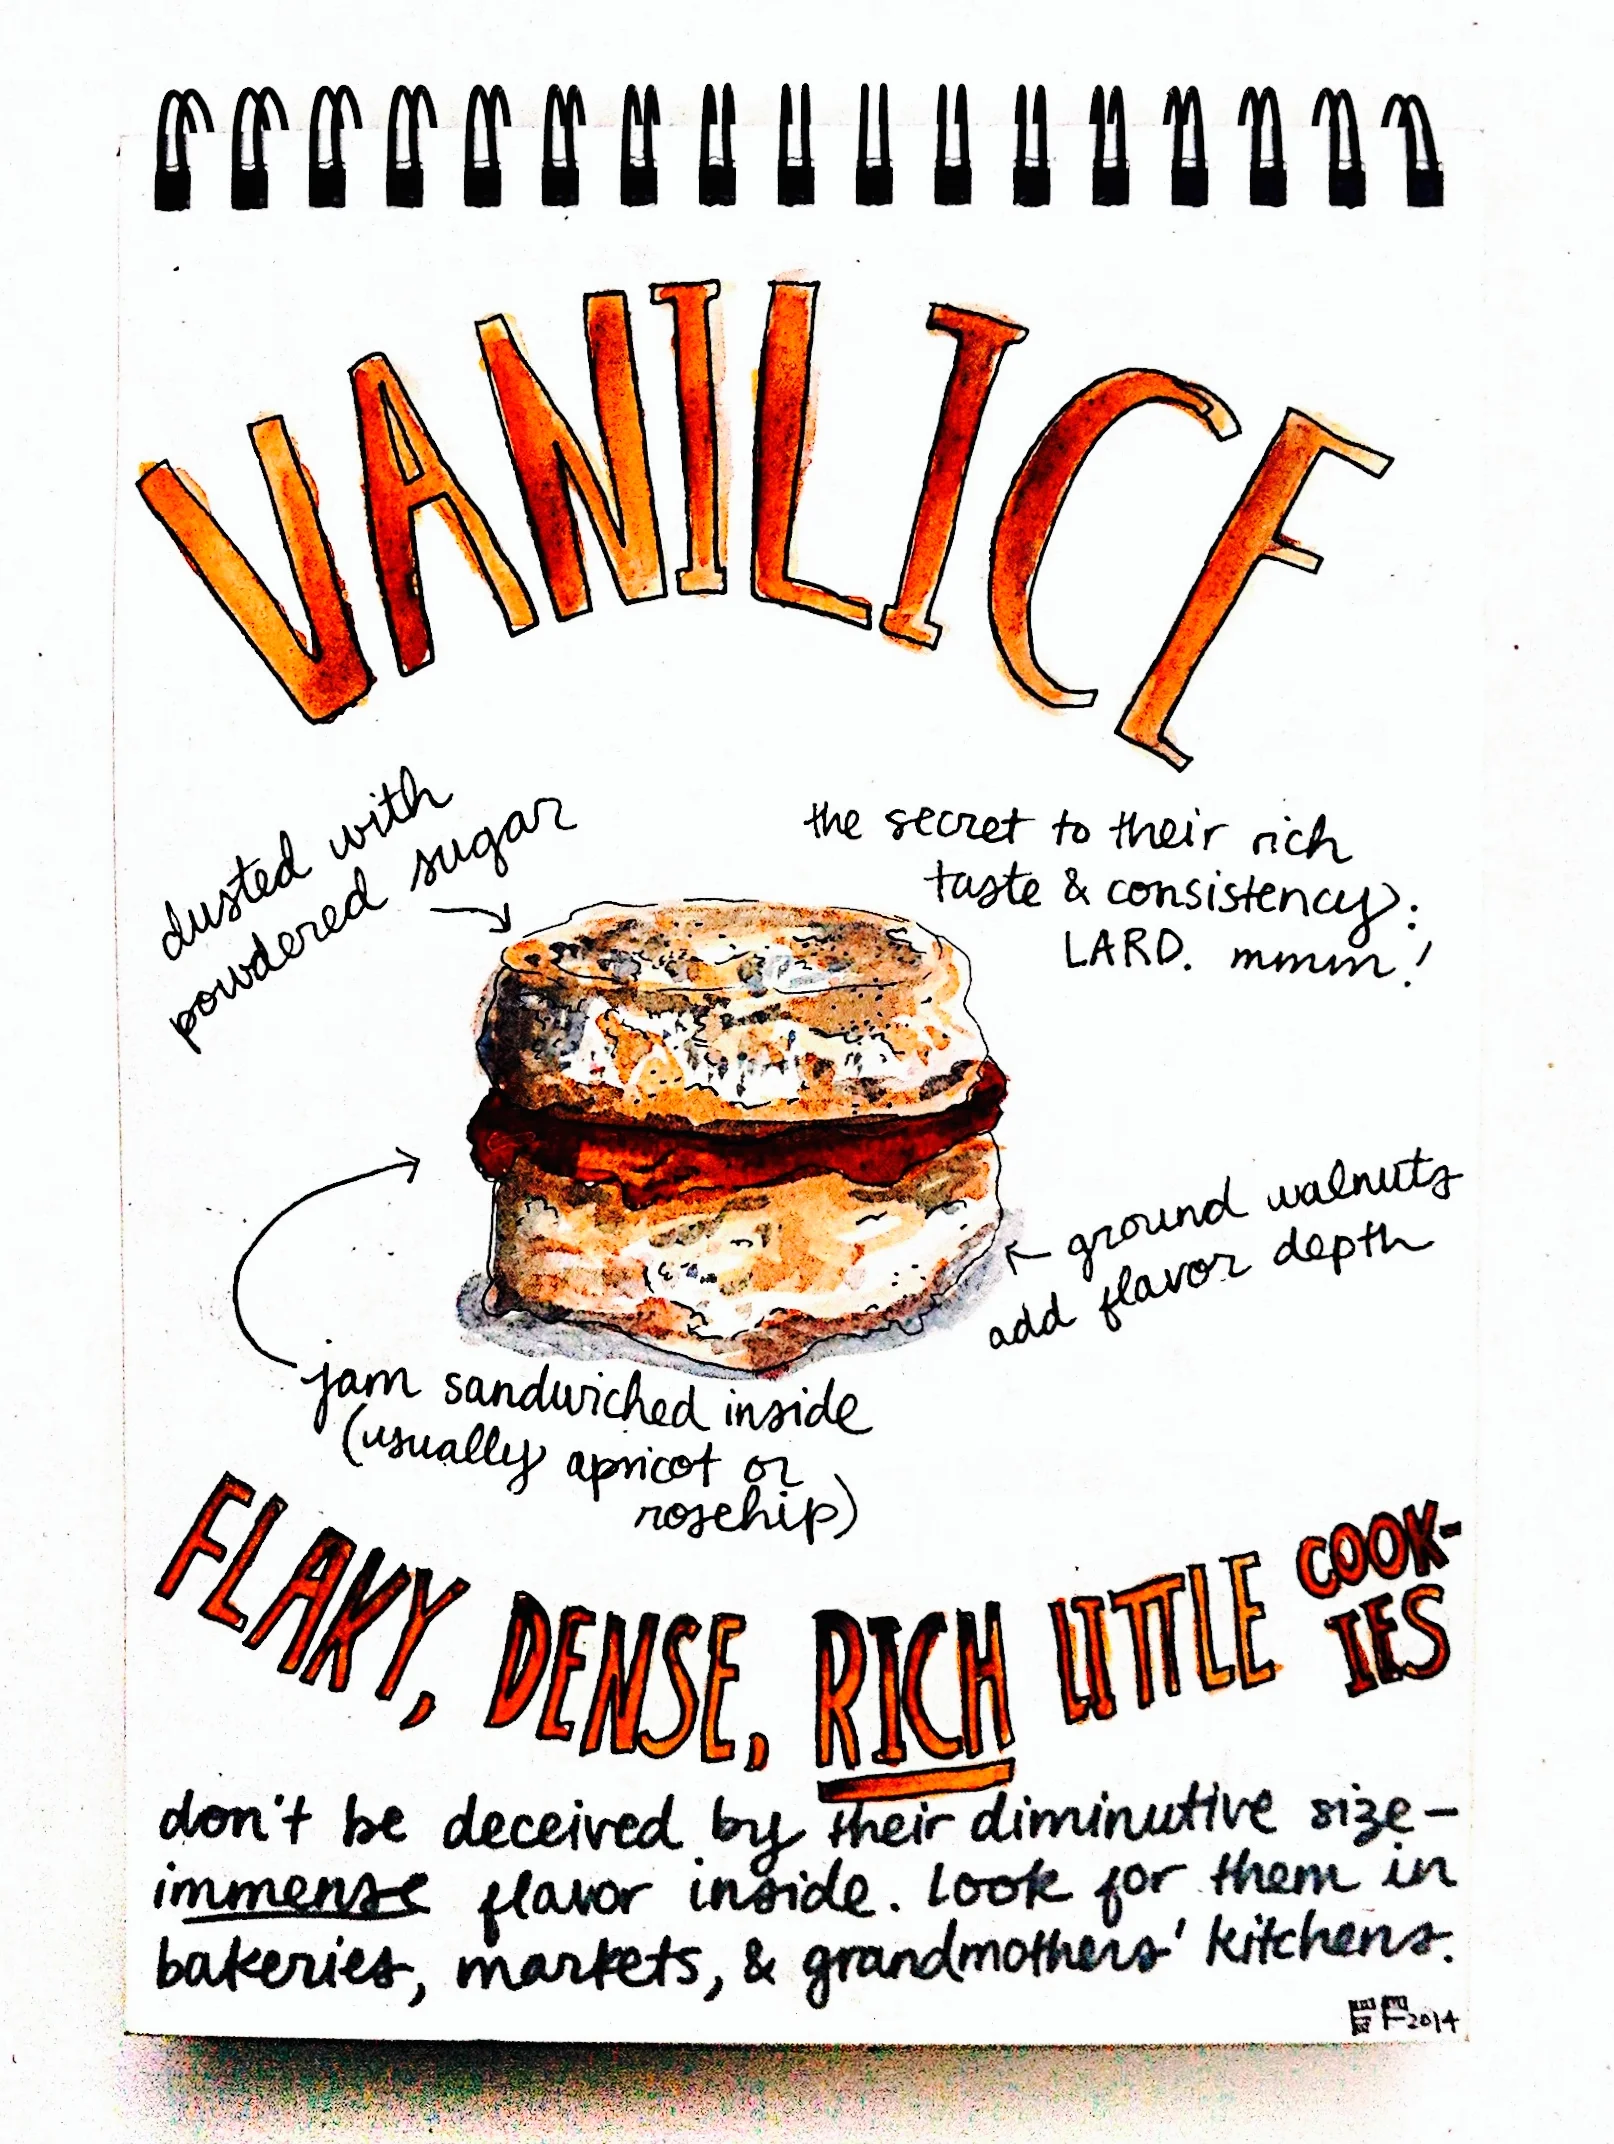 VANILICE
dusted with
powdered sugar
the secret to their rich
taste & consistency:
LARD. mmm!
ground walnuts
add flavor depth
jam sandwiched inside
(usually apricot or
rosehip)
FLAKY, DENSE, RICH LITTLE COOK-
IES
don't be deceived by their diminutive size–
immense flavor inside. look for them in
bakeries, markets, & grandmothers' kitchens.
EF 2014